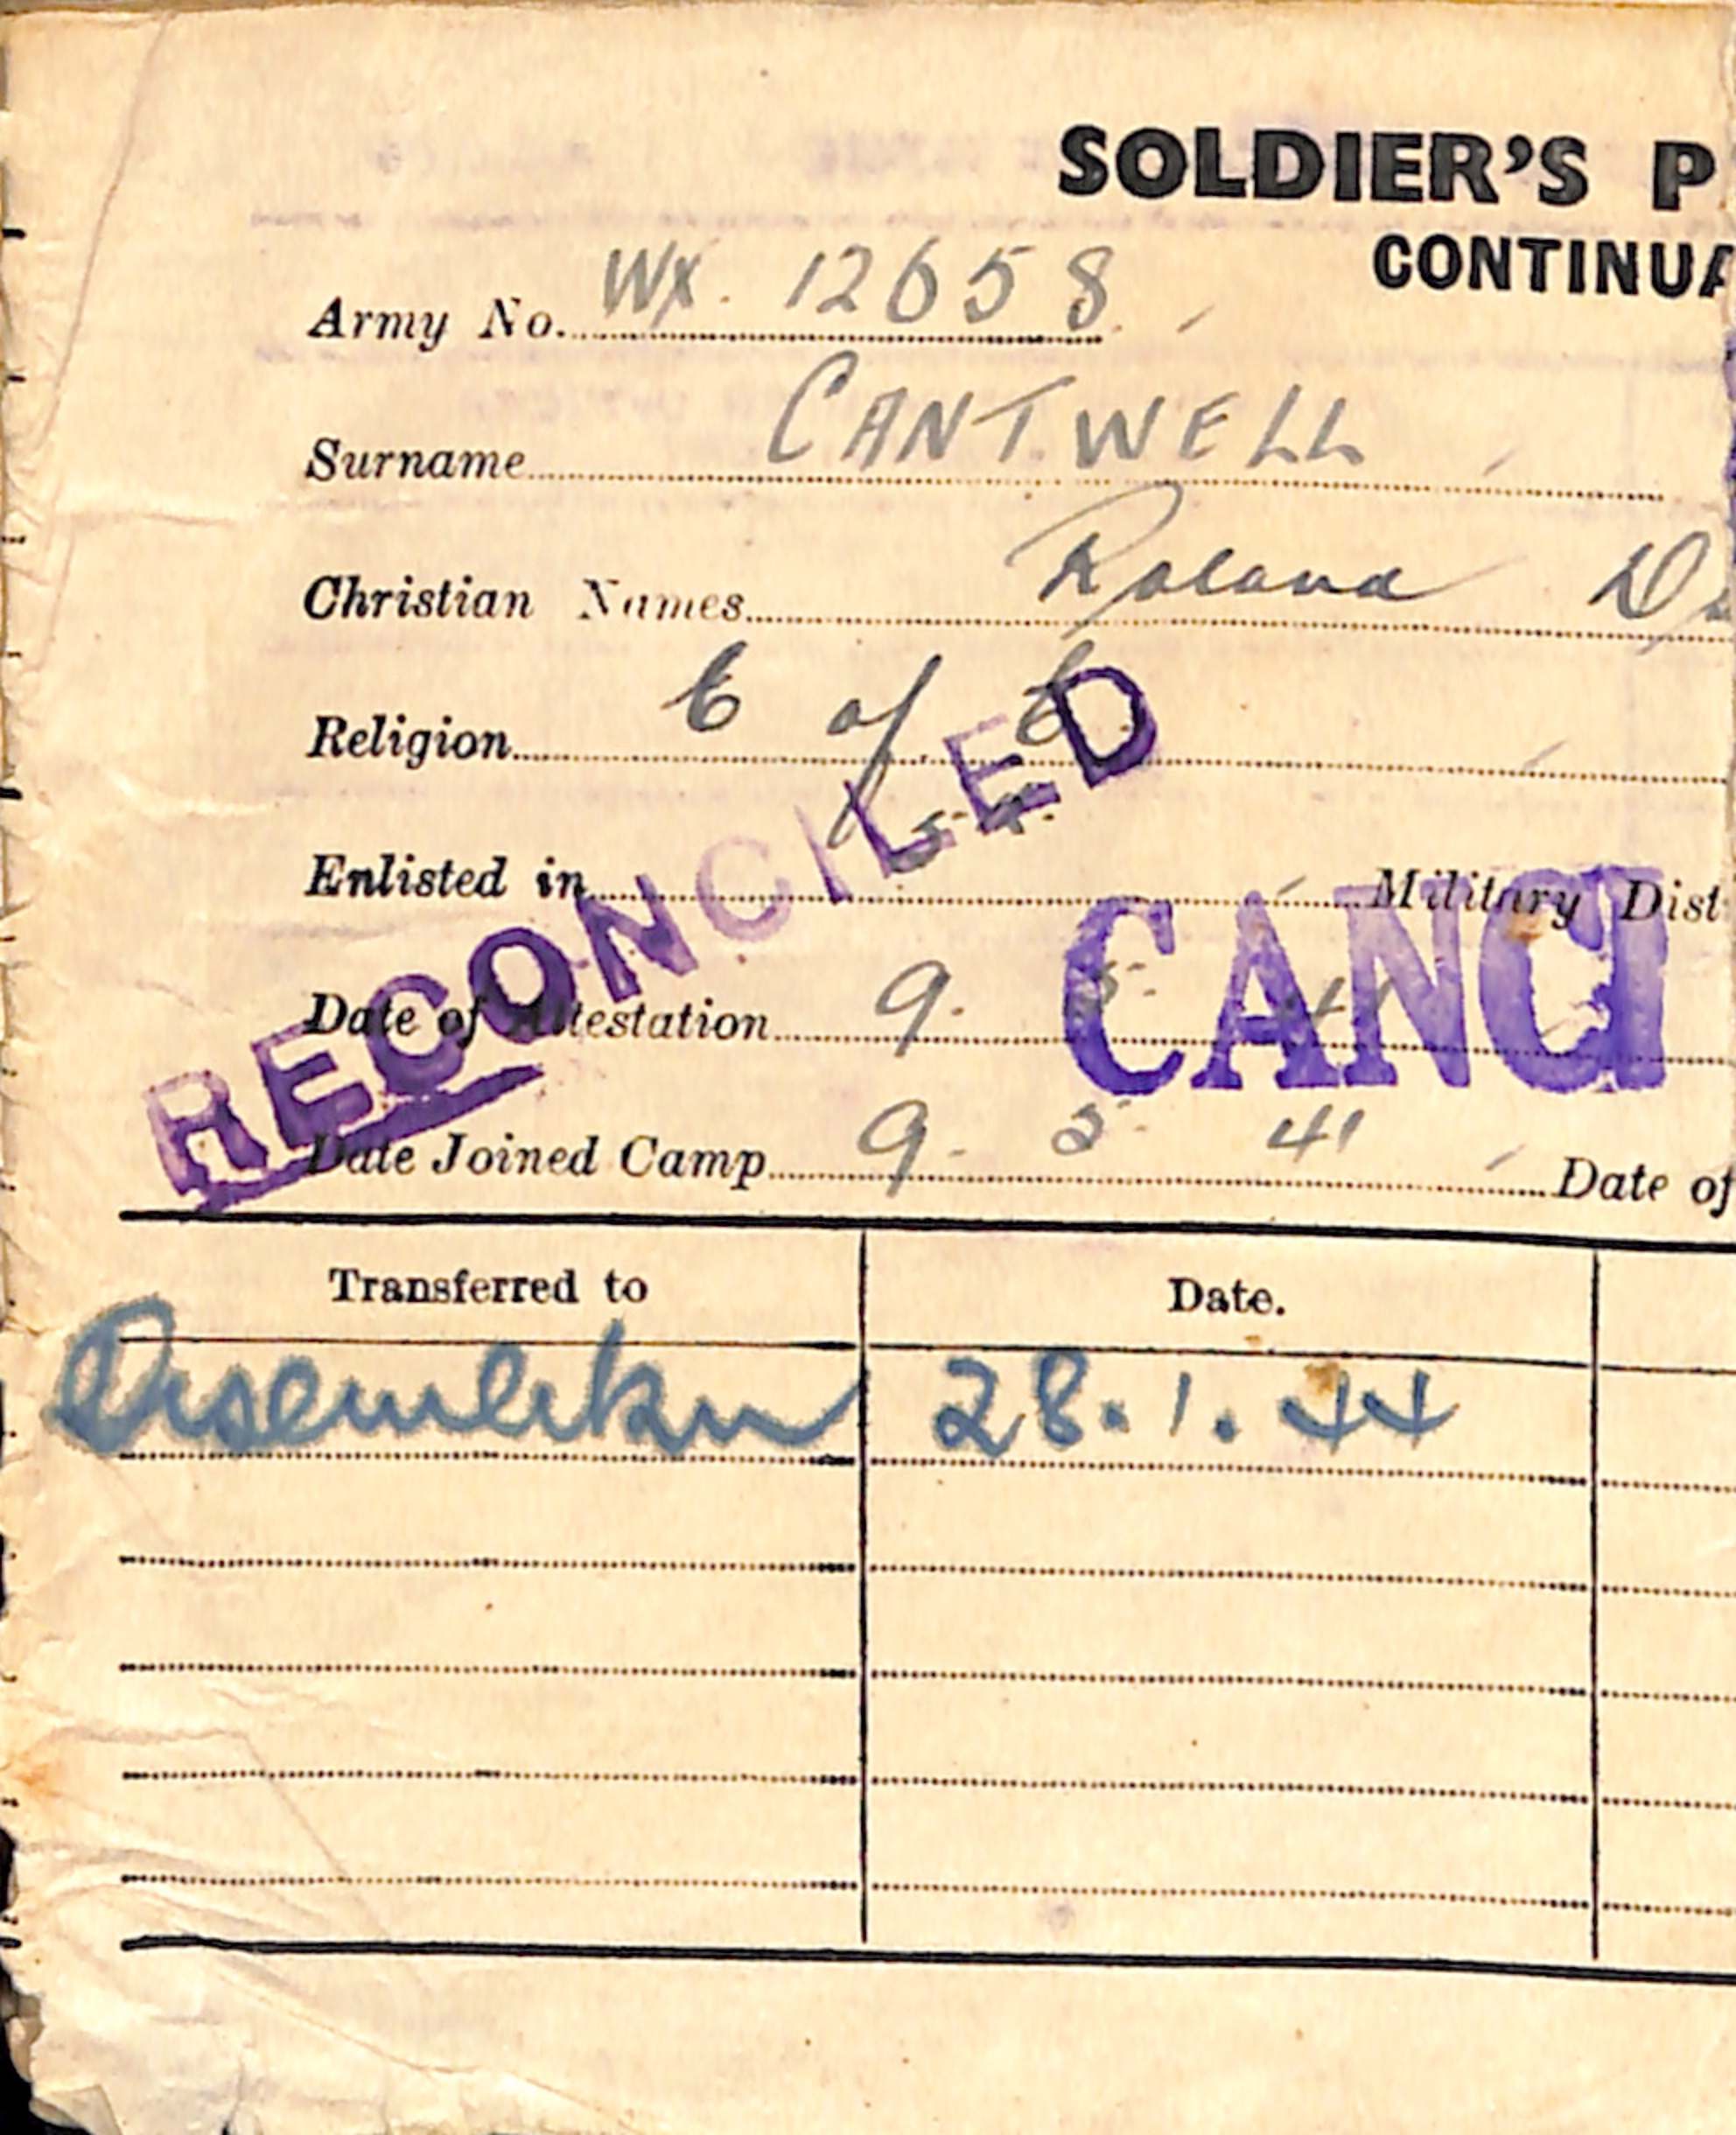 SOLDIER'S P
CONTINUA
Army No. WX. 12658
Surname CANTWELL
Christian Names Roland D
Religion C of E
RECONCILED
Enlisted in Military Dist
CANC
Date of Attestation 9. 5. 41
Date Joined Camp 9. 5. 41 Date of
Transferred to Date.
28.1.44